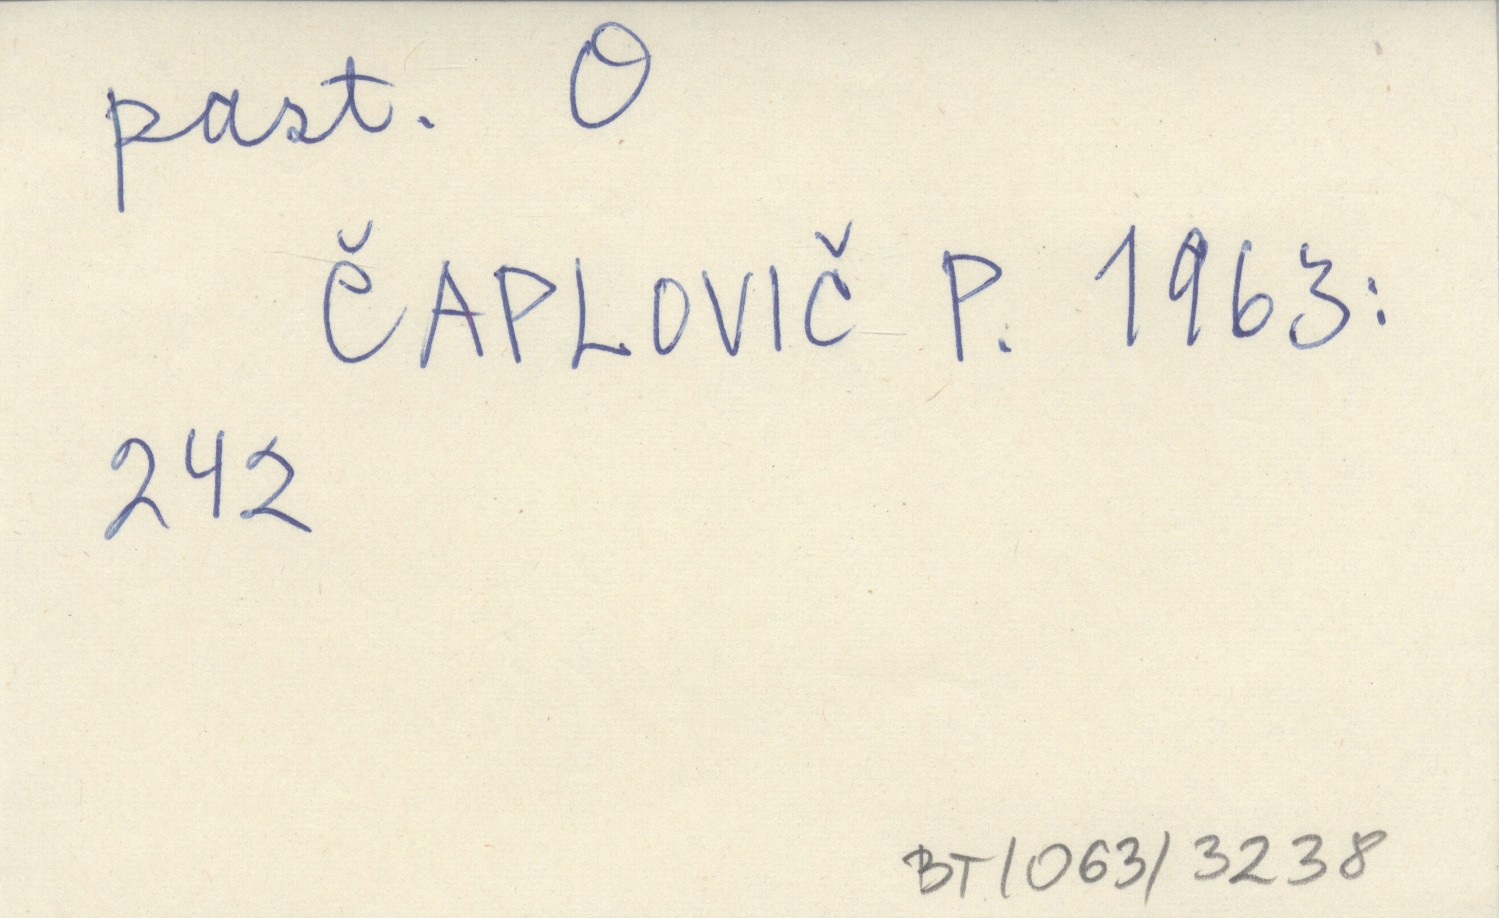 past. O
ČAPLOVIČ P. 1963:
242
BT/063/3238